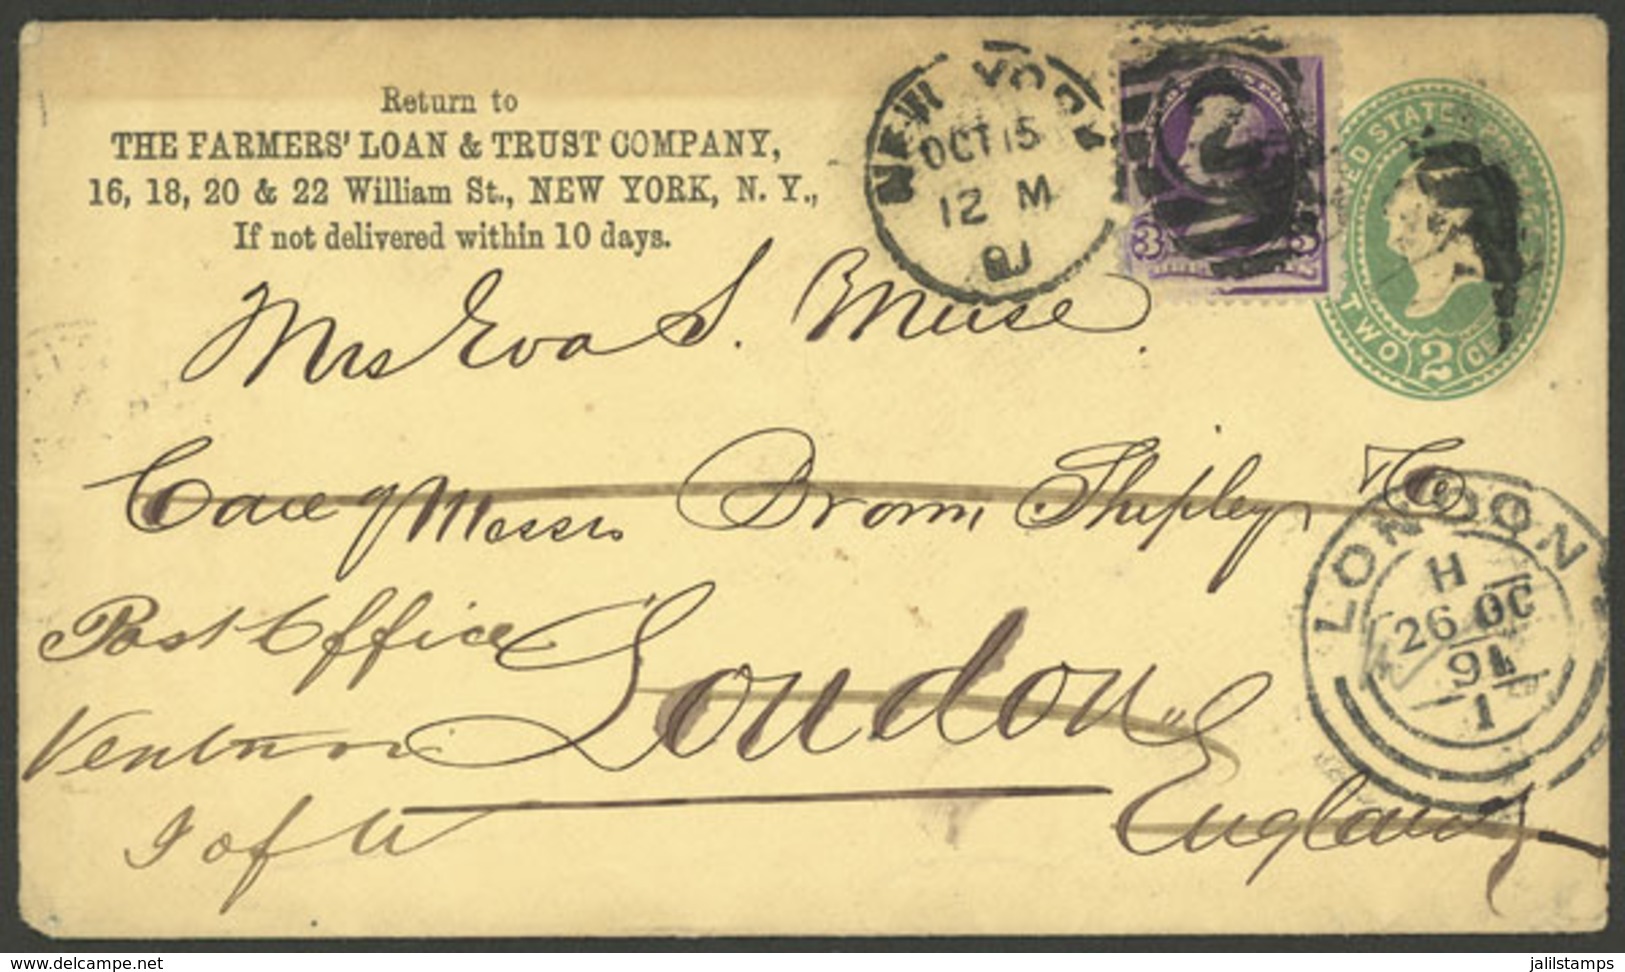 Return to
THE FARMERS' LOAN & TRUST COMPANY,
16, 18, 20 & 22 William St., NEW YORK, N. Y.,
If not delivered within 10 days.
NEW YORK
OCT 15
12 M
91
3 3
UNITED STATES POSTAGE
TWO 2 CE
Mrs Eva S. Muse
Care of Messrs Brown Shipley & Co
London
England
Post Office
Ventnor
I of W
LONDON
H
26 OC
91
1
www.delcampe.net
jalilstamps